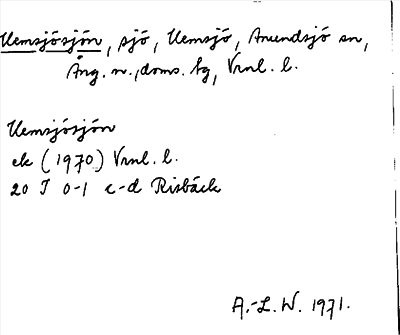 Hemsjösjön, sjö, Hemsjö, Anundsjö sn,
Ång. n., doms. bg, Vrnl. l.
Hemsjösjön
ek (1970) Vrnl. l.
20 I 0-1 c-d Risbäck
A.-L. W. 1971.